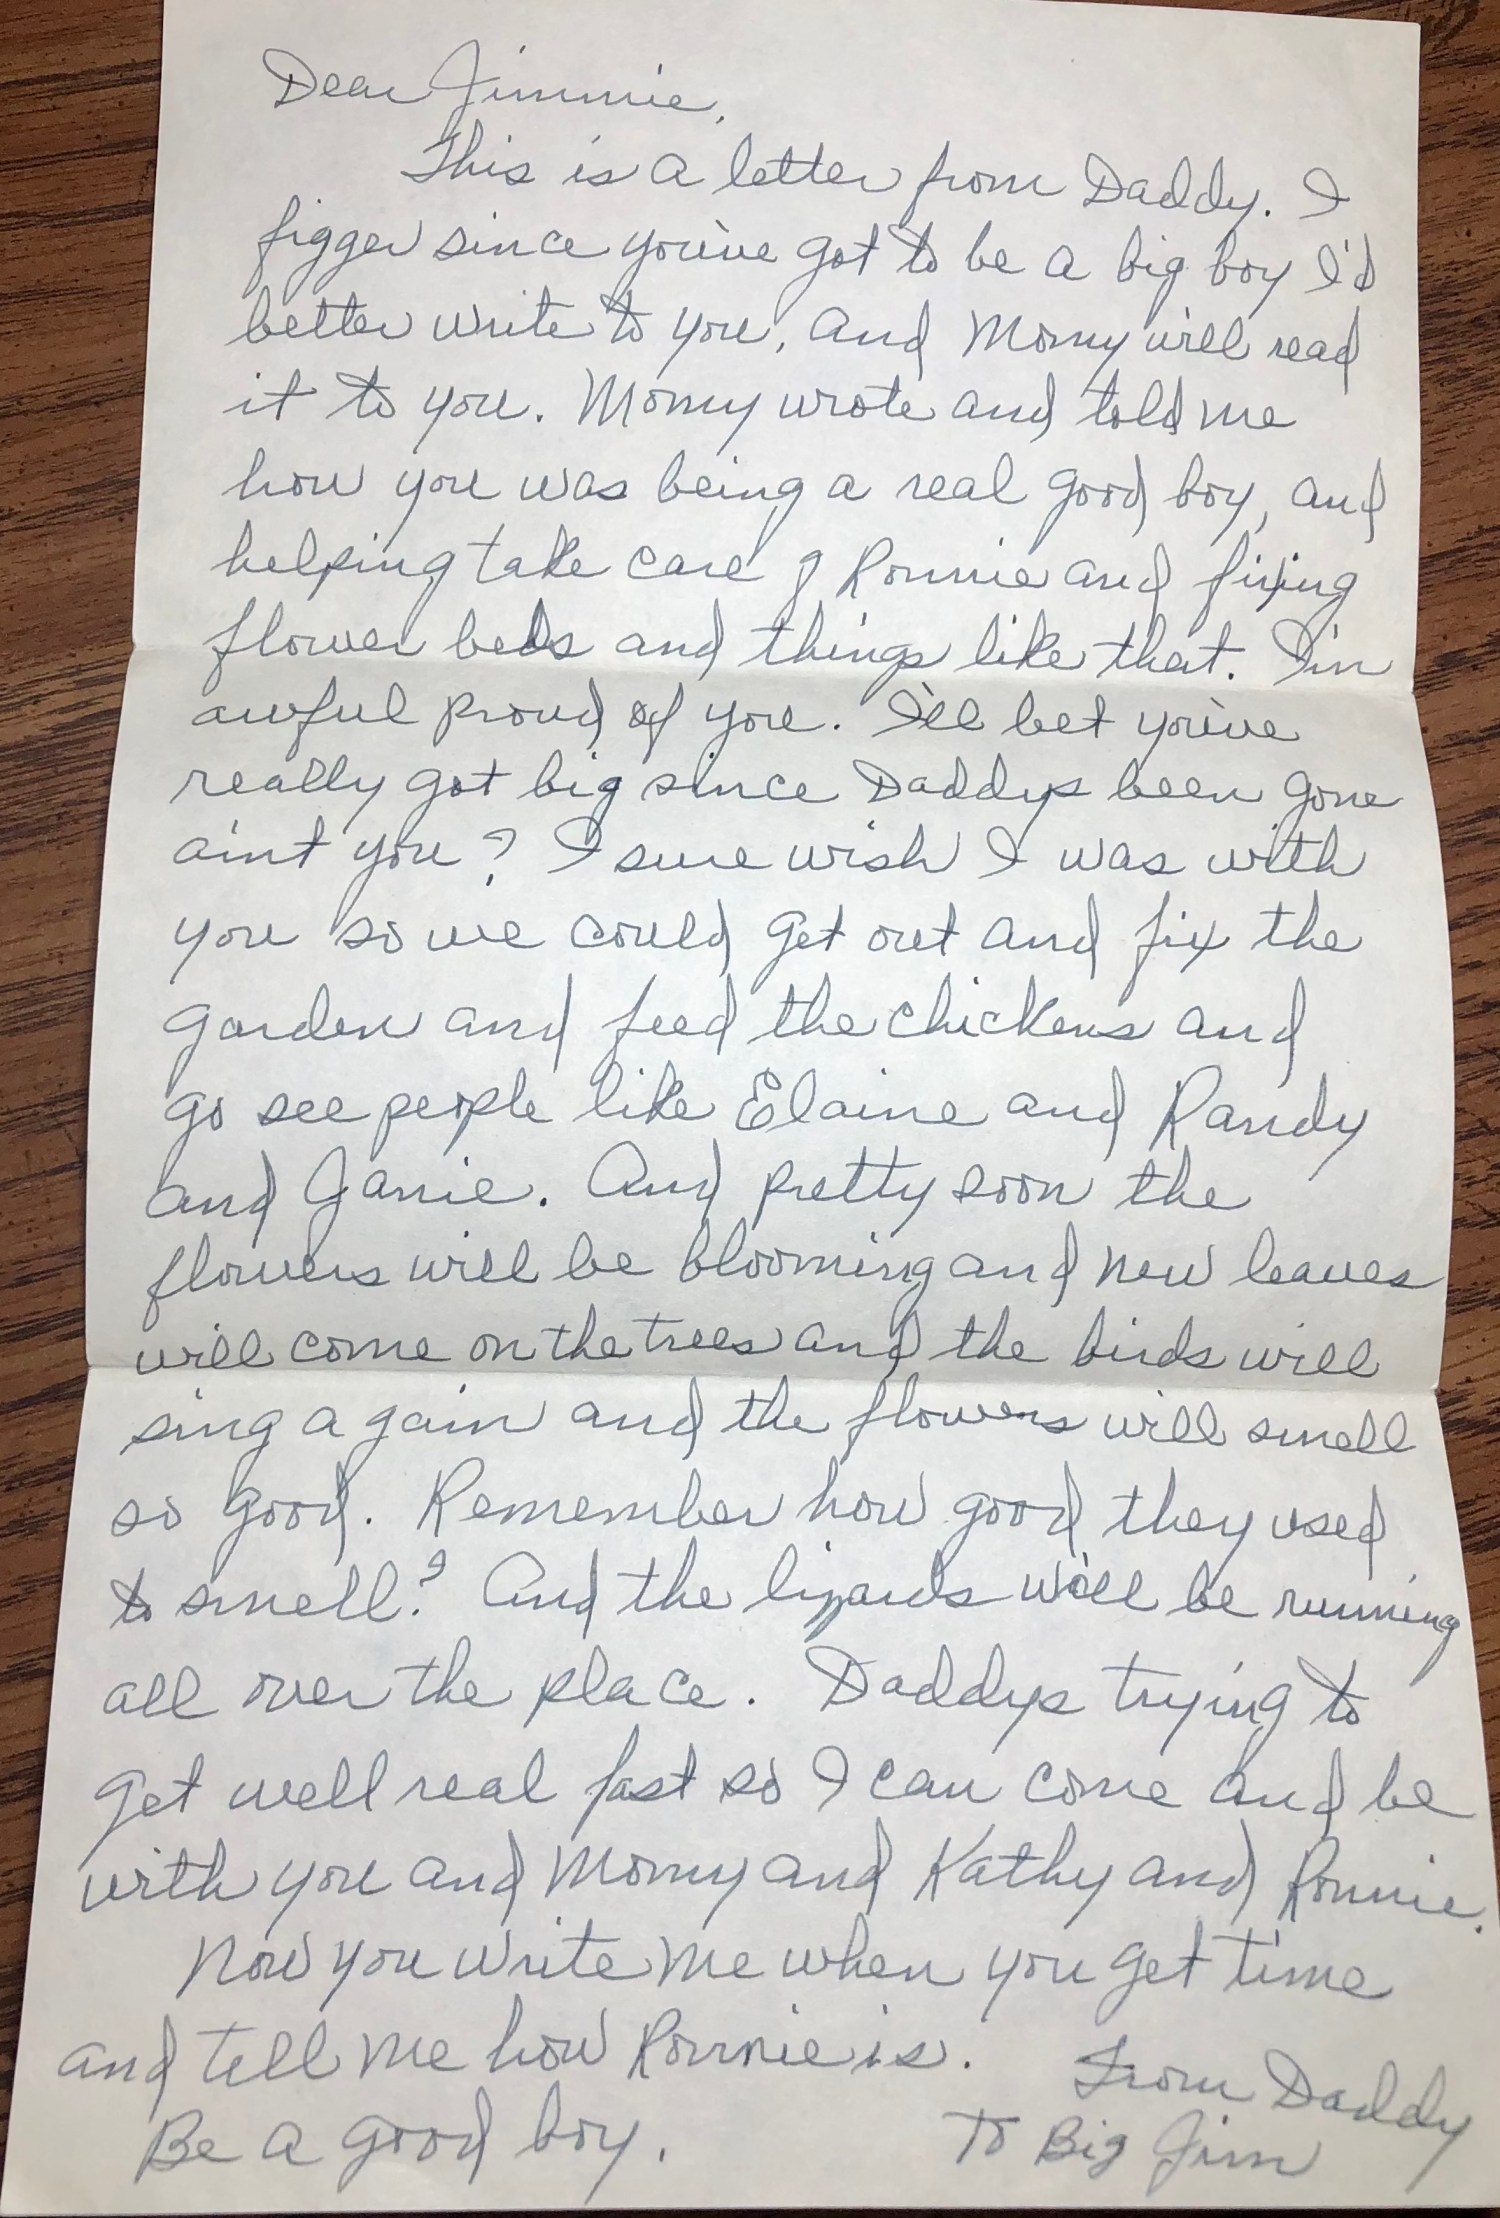 Dear Jimmie,
This is a letter from Daddy. I
figger since you've got to be a big boy I'd
better write to you, and Momy will read
it to you. Momy wrote and told me
how you was being a real good boy, and
helping take care of Ronnie and fixing
flower beds and things like that. I'm
awful proud of you. I'll bet you've
really got big since Daddys been gone
aint you? I sure wish I was with
you so we could get out and fix the
garden and feed the chickens and
go see people like Elaine and Randy
and Janie. And pretty soon the
flowers will be blooming and new leaves
will come on the trees and the birds will
sing again and the flowers will smell
so good. Remember how good they used
to smell? And the lizards will be running
all over the place. Daddys trying to
get well real fast so I can come and be
with you and Momy and Kathy and Ronnie.
Now you write me when you get time
and tell me how Ronnie is.
Be a good boy.
From Daddy
To Big Jim